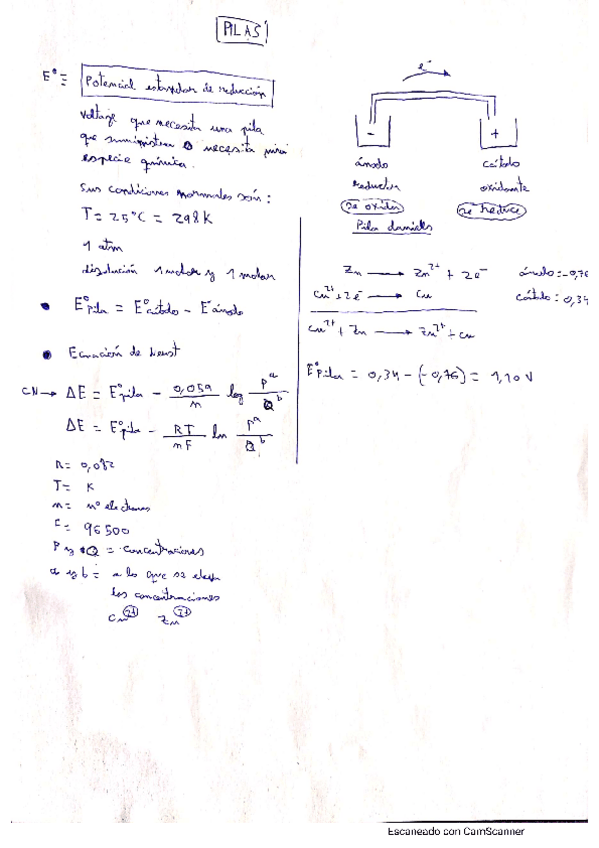 PILAS
E° = Potencial estandar de reducción
Voltaje que necesita una pila
que suministra o necesita una
especie química.
Sus condiciones normales son:
T = 25°C = 298 K
1 atm
disolución 1 molar y 1 molar
• E°pila = E°cátodo - E°ánodo
• Ecuación de Nernst
CN → ΔE = E°pila - 0,059/n log P^a/Q^b
ΔE = E°pila - RT/nF ln P^a/Q^b
R = 0,082
T = K
n = nº electrones
F = 96500
P y Q = concentraciones
a y b = a lo que se elevan
las concentraciones
Cu2+ Zn2+
e-
- +
ánodo cátodo
reductor oxidante
se oxida se reduce
Pila daniells
Zn → Zn2+ + 2e- ánodo: -0,76
Cu2+ + 2e- → Cu cátodo: 0,34
Cu2+ + Zn → Zn2+ + Cu
E°pila = 0,34 - (-0,76) = 1,10 V
Escaneado con CamScanner